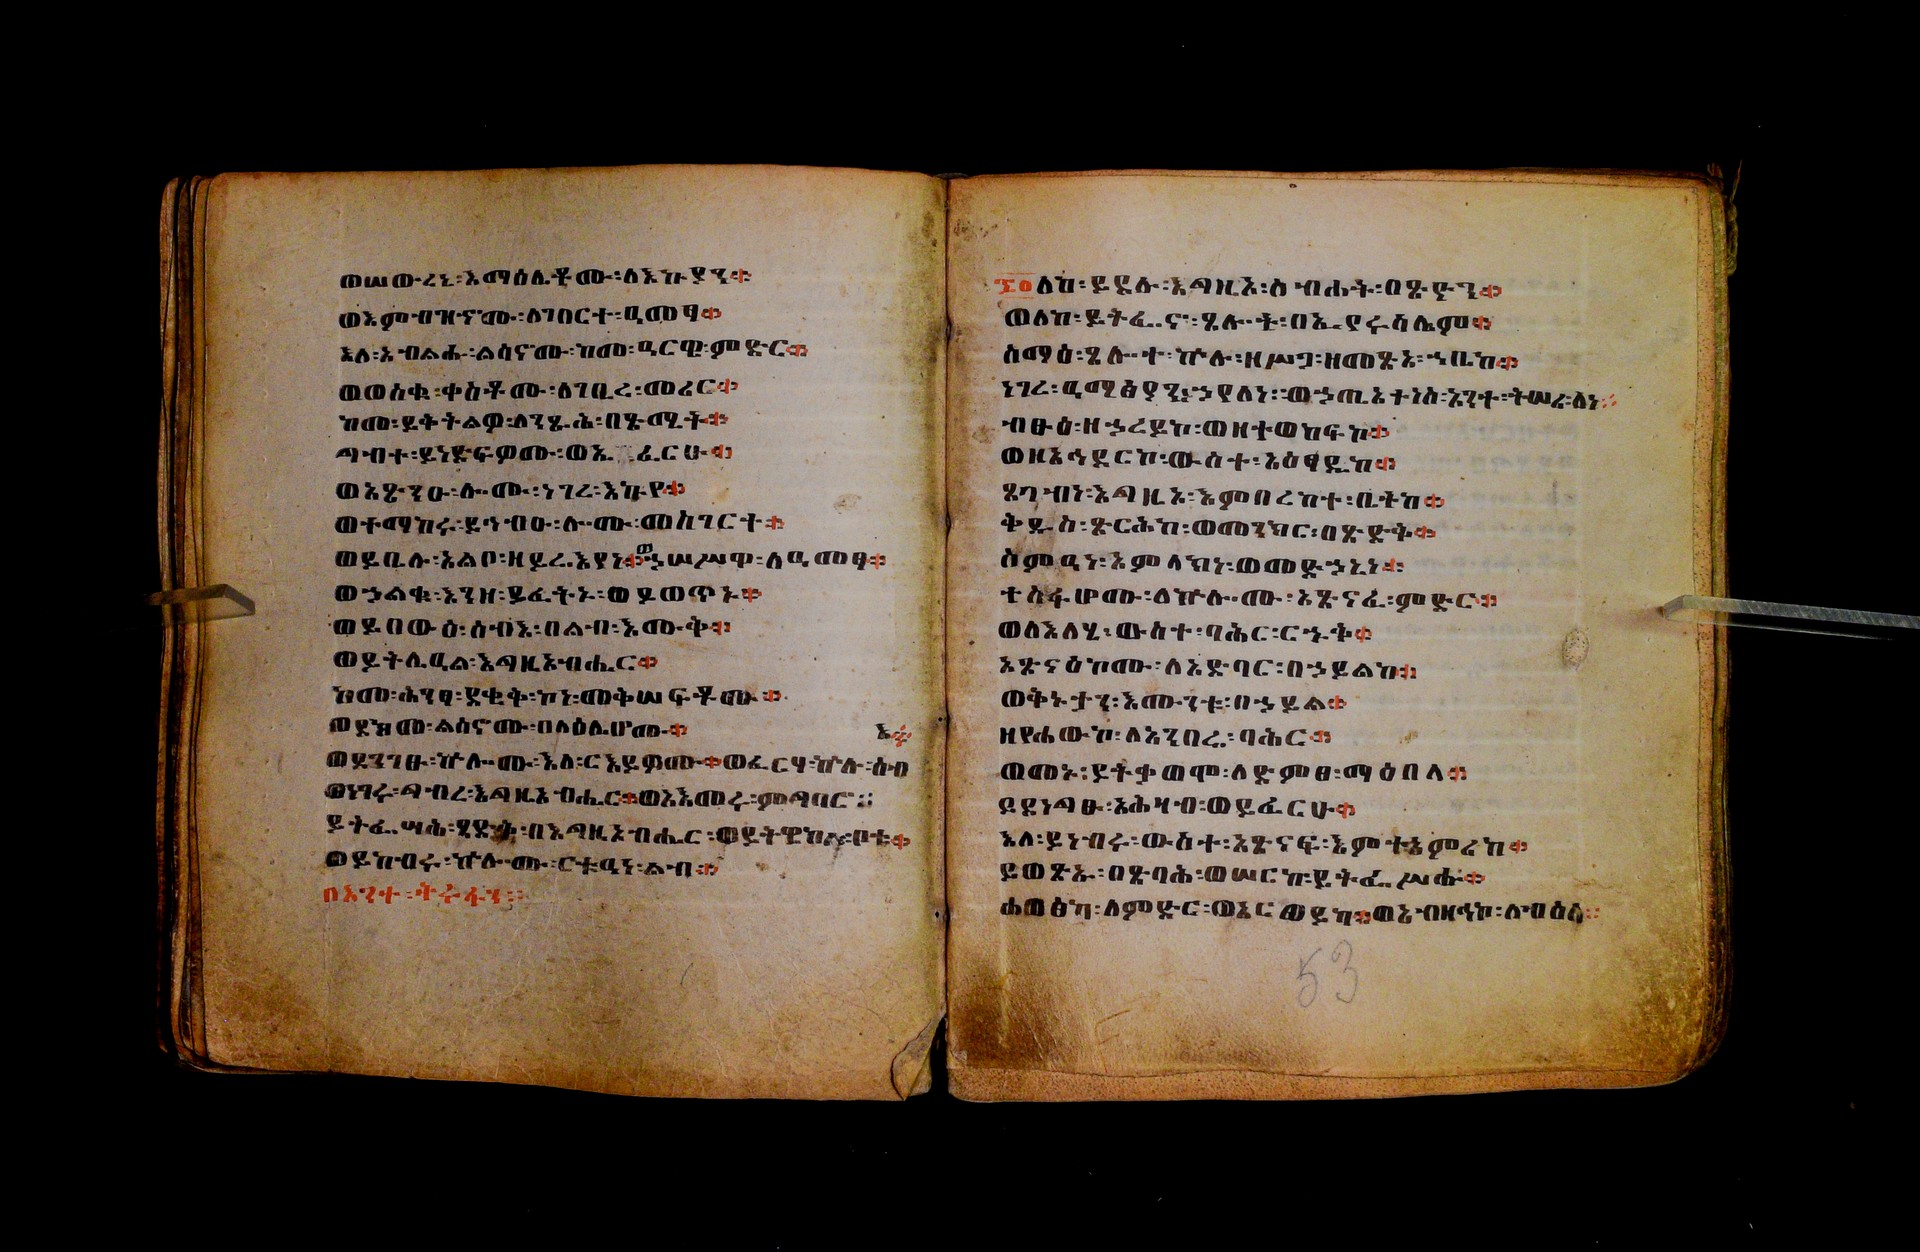 ወሠውረኒ፡እማዕሌቶሙ፡ለእኩያን።
ወእምብዝኆሙ፡ለገበርተ፡ዓመፃ።
እለ፡አብልሑ፡ልሳኖሙ፡ከመ፡ዓርዌ፡ምድር።
ወወሰቁ፡ቀስቶሙ፡ለገቢረ፡መሪር።
ከመ፡ይቅትልዎ፡ለንጹሕ፡በጽሚት።
ግብተ፡ይነድፍዎሙ፡ወኢፈርሁ።
ወአጽንዑ፡ሎሙ፡ነገረ፡እኩየ።
ወተማከሩ፡ይኅብዑ፡ሎሙ፡መስገርተ።
ወይቤሉ፡አልቦ፡ዘይሬእየነ።ወኃሠሥዋ፡ለዓመፃ።
ወኃልቁ፡እንዘ፡ይፈትኑ፡ወይወጥኑ።
ወይበውዕ፡ሰብእ፡በልብ፡እሙቅ።
ወይትሌዓል፡እግዚአብሔር።
ከመ፡ሕንፃ፡ደቂቅ፡ኮነ፡መቅሠፍቶሙ።
ወደክሙ፡ልሳኖሙ፡በላዕሌሆሙ።
ወደንገፁ፡ኵሎሙ፡እለ፡ርእይዎሙ።ወፈርሃ፡ኵሉ፡ሰብእ።
ወነገሩ፡ግብረ፡እግዚአብሔር።ወአእመሩ፡ምግባሮ።
ይትፌሣሕ፡ጻድቅ፡በእግዚአብሔር፡ወይትዌከል፡ቦቱ።
ወይከብሩ፡ኵሎሙ፡ርቱዓነ፡ልብ።
በእንተ፡ትሩፋን።
፷፬ለከ፡ይደሉ፡እግዚኦ፡ስብሐት፡በጽዮን።
ወለከ፡ይትፌኖ፡ጸሎት፡በኢየሩሳሌም።
ስማዕ፡ጸሎተ፡ኵሉ፡ዘሥጋ፡ዘመጽአ፡ኀቤከ።
ነገረ፡ዓማፅያን፡ኃየለነ፡ወኃጢአተነሰ፡አንተ፡ትሠሪ፡ለነ።
ብፁዕ፡ዘኃረይከ፡ወዘተወከፍከ።
ወዘአኅደርከ፡ውስተ፡አዕፃዲከ።
ጸግብነ፡እግዚኦ፡እምበረከተ፡ቤትከ።
ቅዱስ፡ጽርሕከ፡ወመንክር፡በጽድቅ።
ስምዓነ፡አምላክነ፡ወመድኃኒነ።
ተስፋሆሙ፡ለኵሎሙ፡አጽናፈ፡ምድር።
ወለእለሂ፡ውስተ፡ባሕር፡ርኁቅ።
አጽናዕኮሙ፡ለአድባር፡በኃይልከ።
ወቅኑታን፡እሙንቱ፡በኃይል።
ዘየሐውኮ፡ለአንበሬ፡ባሕር።
ወመኑ፡ይትቃወሞ፡ለድምፀ፡ማዕበላ።
ይደነግፁ፡አሕዛብ፡ወይፈርሁ።
እለ፡ይነብሩ፡ውስተ፡አጽናፍ፡እምተአምሪከ።
ይወጽኡ፡በጽባሕ፡ወሠርከ፡ይትፌሥሑ።
ሐወፅካ፡ለምድር፡ወአርወይካ።ወአብዛኅኮ፡ለብዕላ።
53